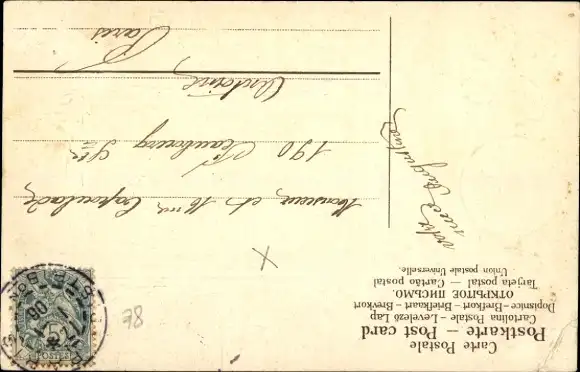 Carte Postale
Postkarte – Post card
Cartolina Postale – Levelező Lap
Dopisnice – Brefkort – Briefkaart – Brevkort
ОТКРЫТОЕ ПИСЬМО.
Tarjeta postal – Cartão postal
Union postale Universelle.
Monsieur et Mme
190 Faubourg St
Antoine
Paris
votre
Augustine
78
5
POSTES